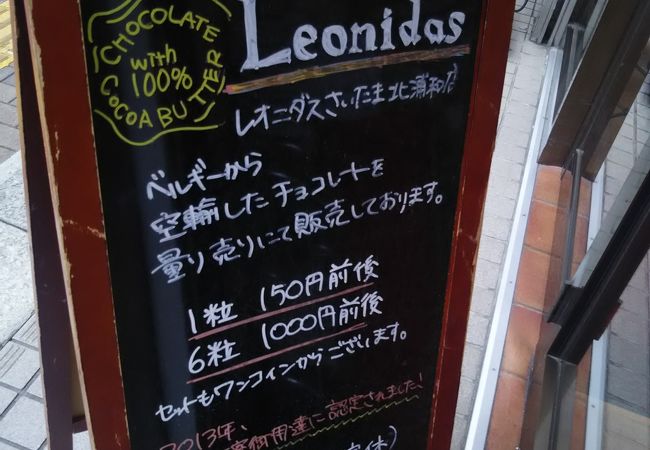 CHOCOLATE
with
100%
COCOA BUTTER
Leonidas
レオニダスさいたま北浦和店
ベルギーから
空輸したチョコレートを
量り売りにて販売しております。
1粒 150円前後
6粒 1000円前後
セットもワンコインからございます。
2013年、
御用達に認定されました!
休)